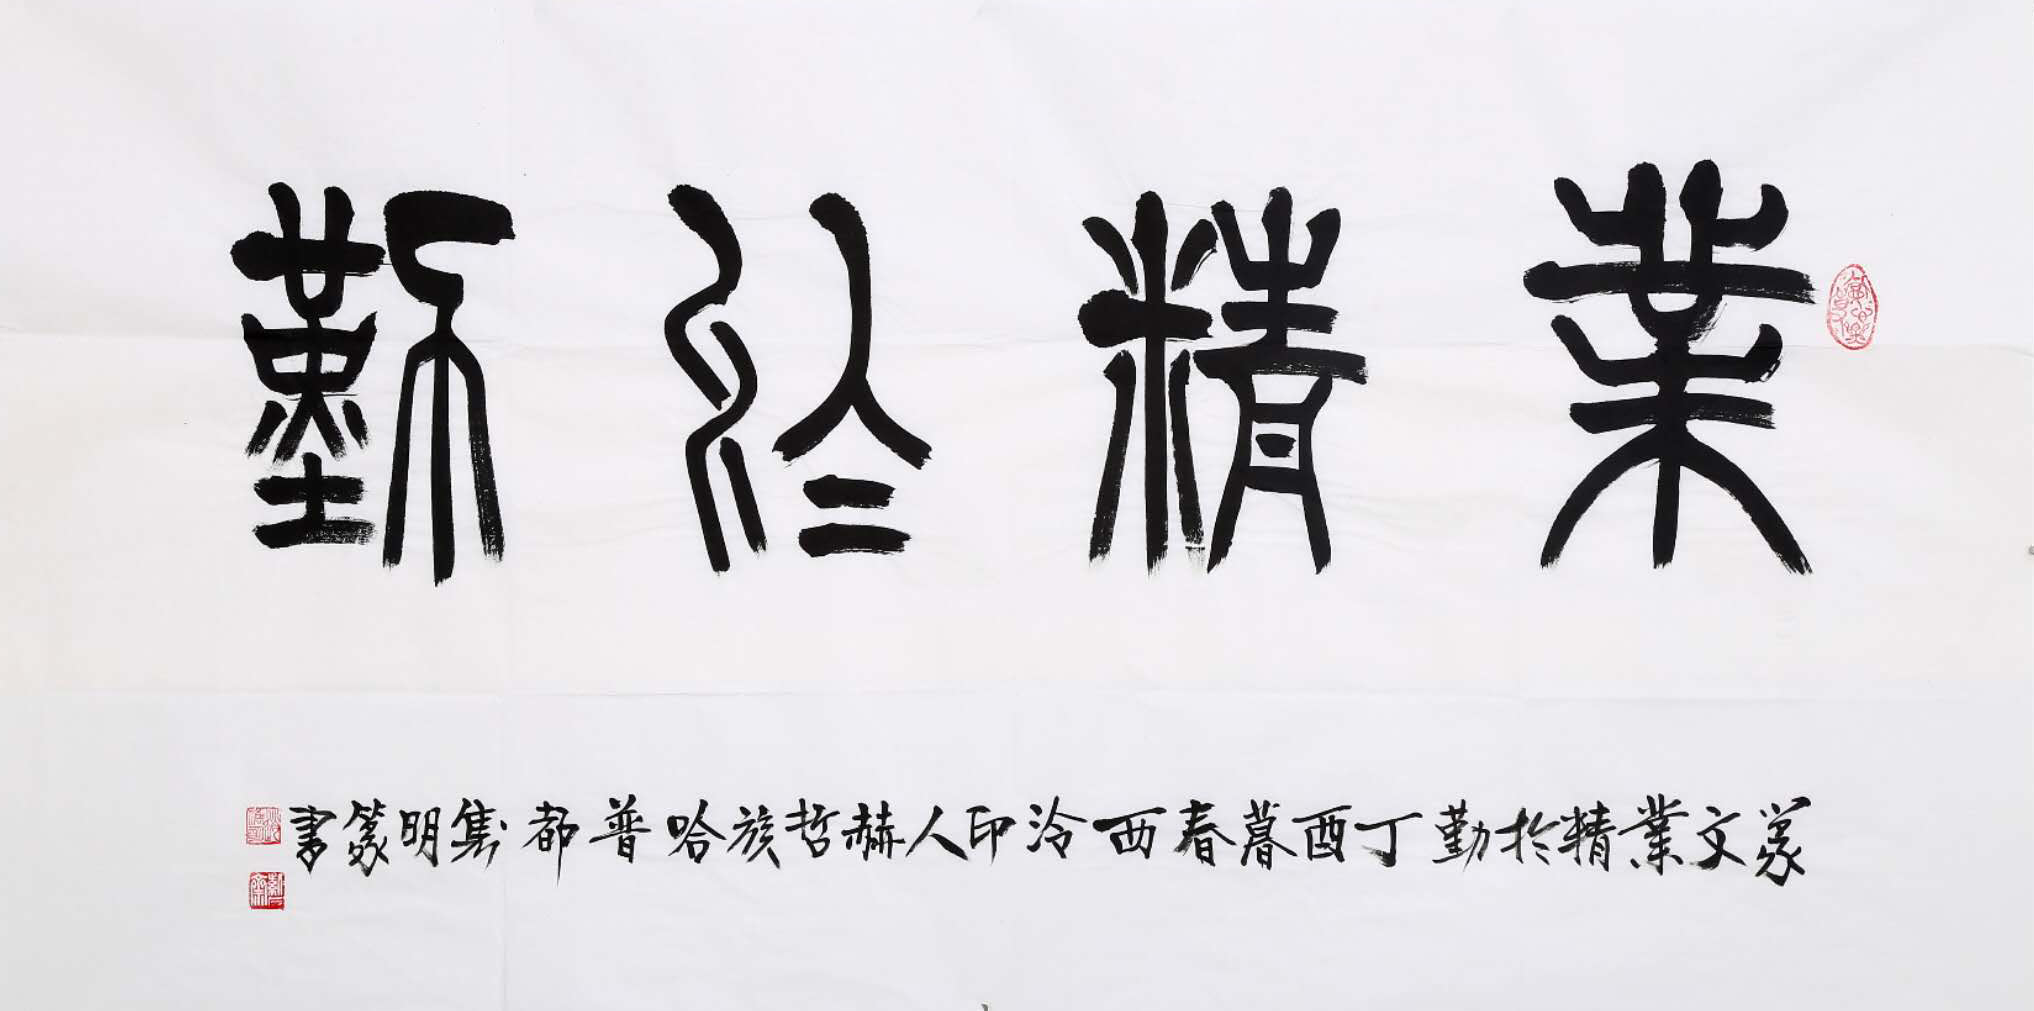 業精於勤
篆文業精於勤丁酉暮春西泠印人赫哲族哈普都隽明篆書